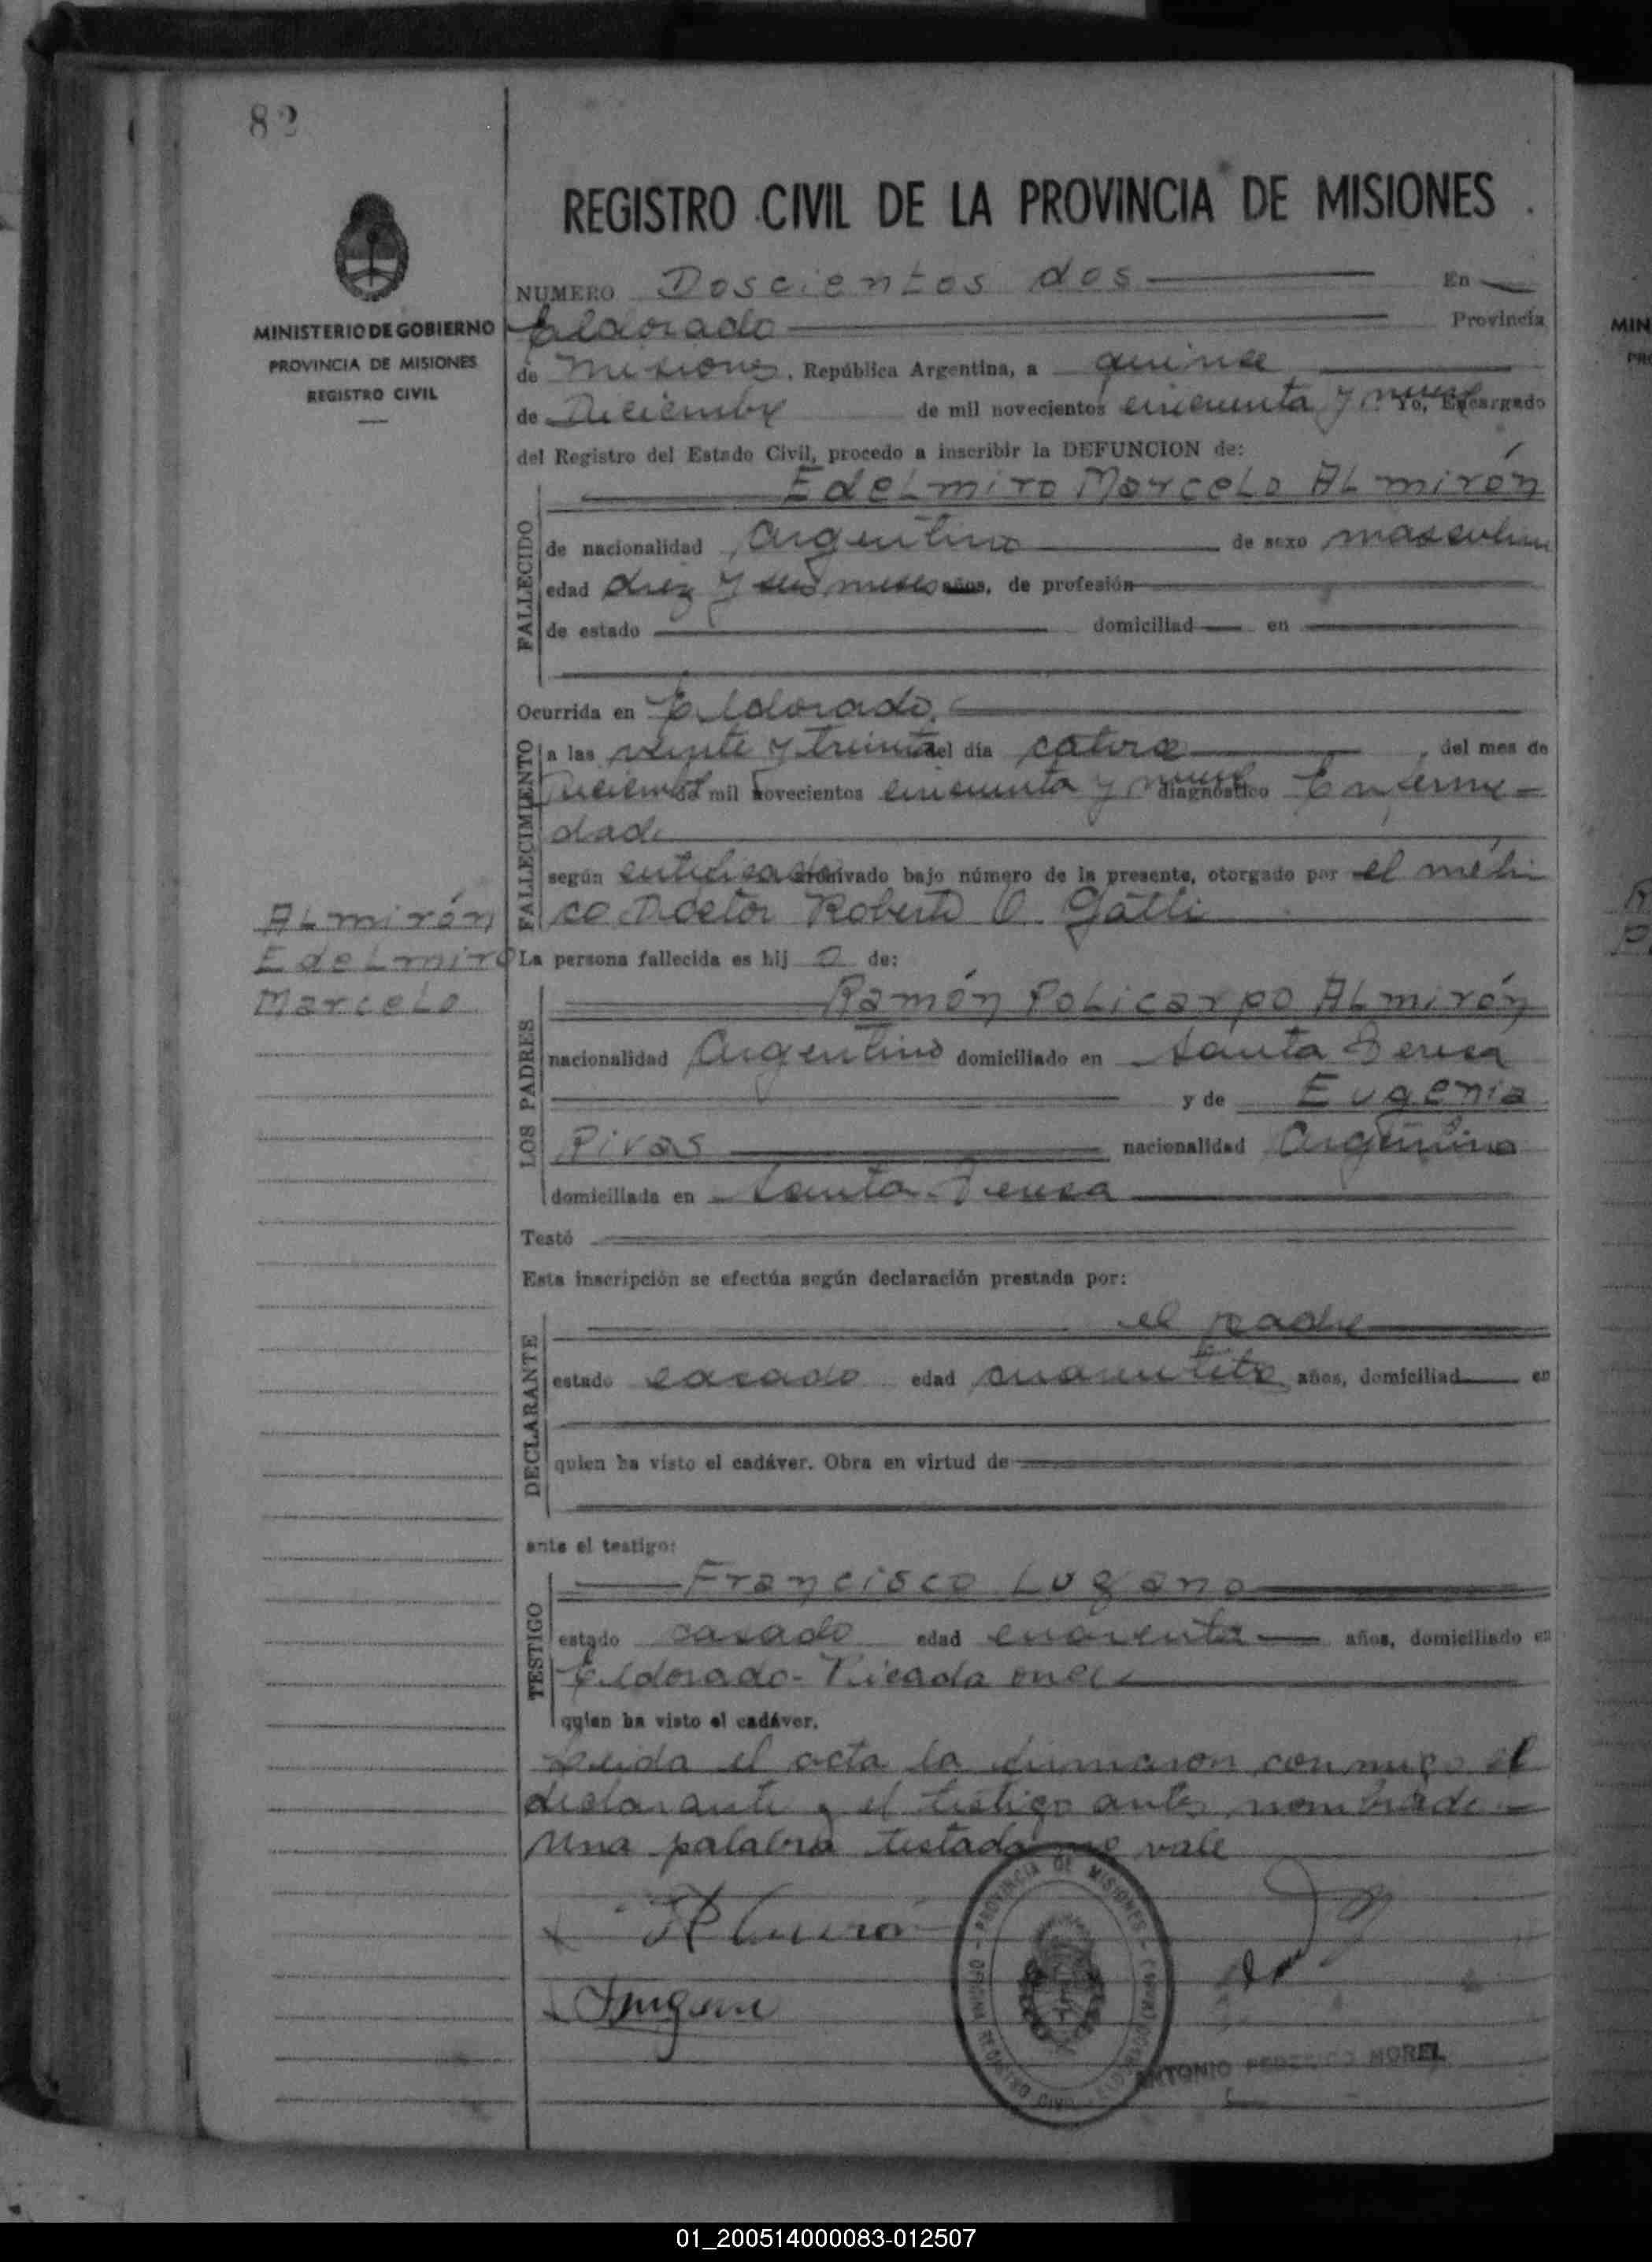 82
REGISTRO CIVIL DE LA PROVINCIA DE MISIONES
MINISTERIO DE GOBIERNO
PROVINCIA DE MISIONES
REGISTRO CIVIL
NUMERO Doscientos dos En
Eldorado Provincia
de Misiones, República Argentina, a quinse
de Diciembre de mil novecientos cincuenta y nueve Yo, Encargado
del Registro del Estado Civil, procedo a inscribir la DEFUNCION de:
Edelmiro Marcelo Almirón
FALLECIDO
de nacionalidad Argentino de sexo masculino
edad diez y seis meses años, de profesión
de estado domiciliad en
Ocurrida en Eldorado.
FALLECIMIENTO
a las veinte y treinta del día catorce, del mes de
Diciembre de mil novecientos cincuenta y nueve diagnóstico Enferme=
dad.
según certificado archivado bajo número de la presente, otorgado por el médi
co Doctor Roberto O. Gatti
Almirón
Edelmiro
Marcelo
La persona fallecida es hij o de:
LOS PADRES
Ramón Policarpo Almirón
nacionalidad Argentino domiciliado en Santa Teresa
y de Eugenia
Rivas nacionalidad Argentina
domiciliada en Santa Teresa
Testó
Esta inscripción se efectúa según declaración prestada por:
DECLARANTE
el padre
estado casado edad años, domiciliad en
quien ha visto el cadáver. Obra en virtud de
ante el testigo:
TESTIGO
Francisco Lugano
estado casado edad cuarenta años, domiciliado en
Eldorado - Picada once
quien ha visto el cadáver.
Leida el acta la firmaron conmigo el
declarante y el testigo antes nombrado =
Una palabra testada no vale
OFICINA REGISTRO CIVIL - PROVINCIA DE MISIONES - ELDORADO
ANTONIO FEDERICO MOREL
01_200514000083-012507